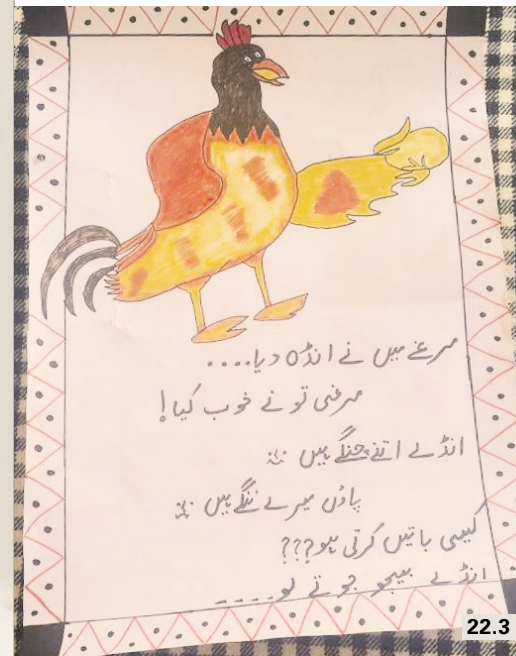 مرغے میں نے انڈہ دیا....
مرغی تو نے خوب کیا!
انڈے اتنے چنگے ہیں
پاؤں میرے ننگے ہیں
کیسی باتیں کرتی ہو???
انڈے بیجو جوتے لو----
22.3